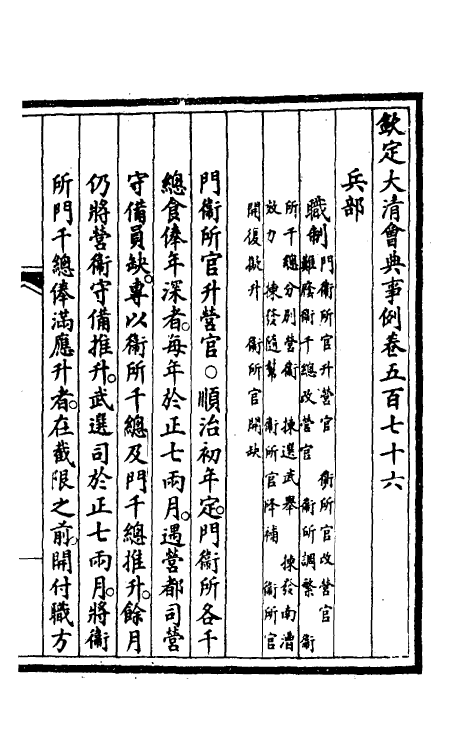 欽定大清會典事例卷五百七十六
兵部
職制
門衞所官升營官　衞所官改營官
難廕衞千總改營官　衞所調繁　衞
所千總分別營衞　揀選武舉　揀發南漕
效力　揀發隨幫　衞所官降補　衞所官
開復擬升　衞所官開缺
門衞所官升營官○順治初年定。門衞所各千
總食俸年深者。每年於正七兩月。遇營都司營
守備員缺。專以衞所千總及門千總推升。餘月
仍將營衞守備推升。武選司於正七兩月。將衞
所門千總俸滿應升者。在截限之前。開付職方